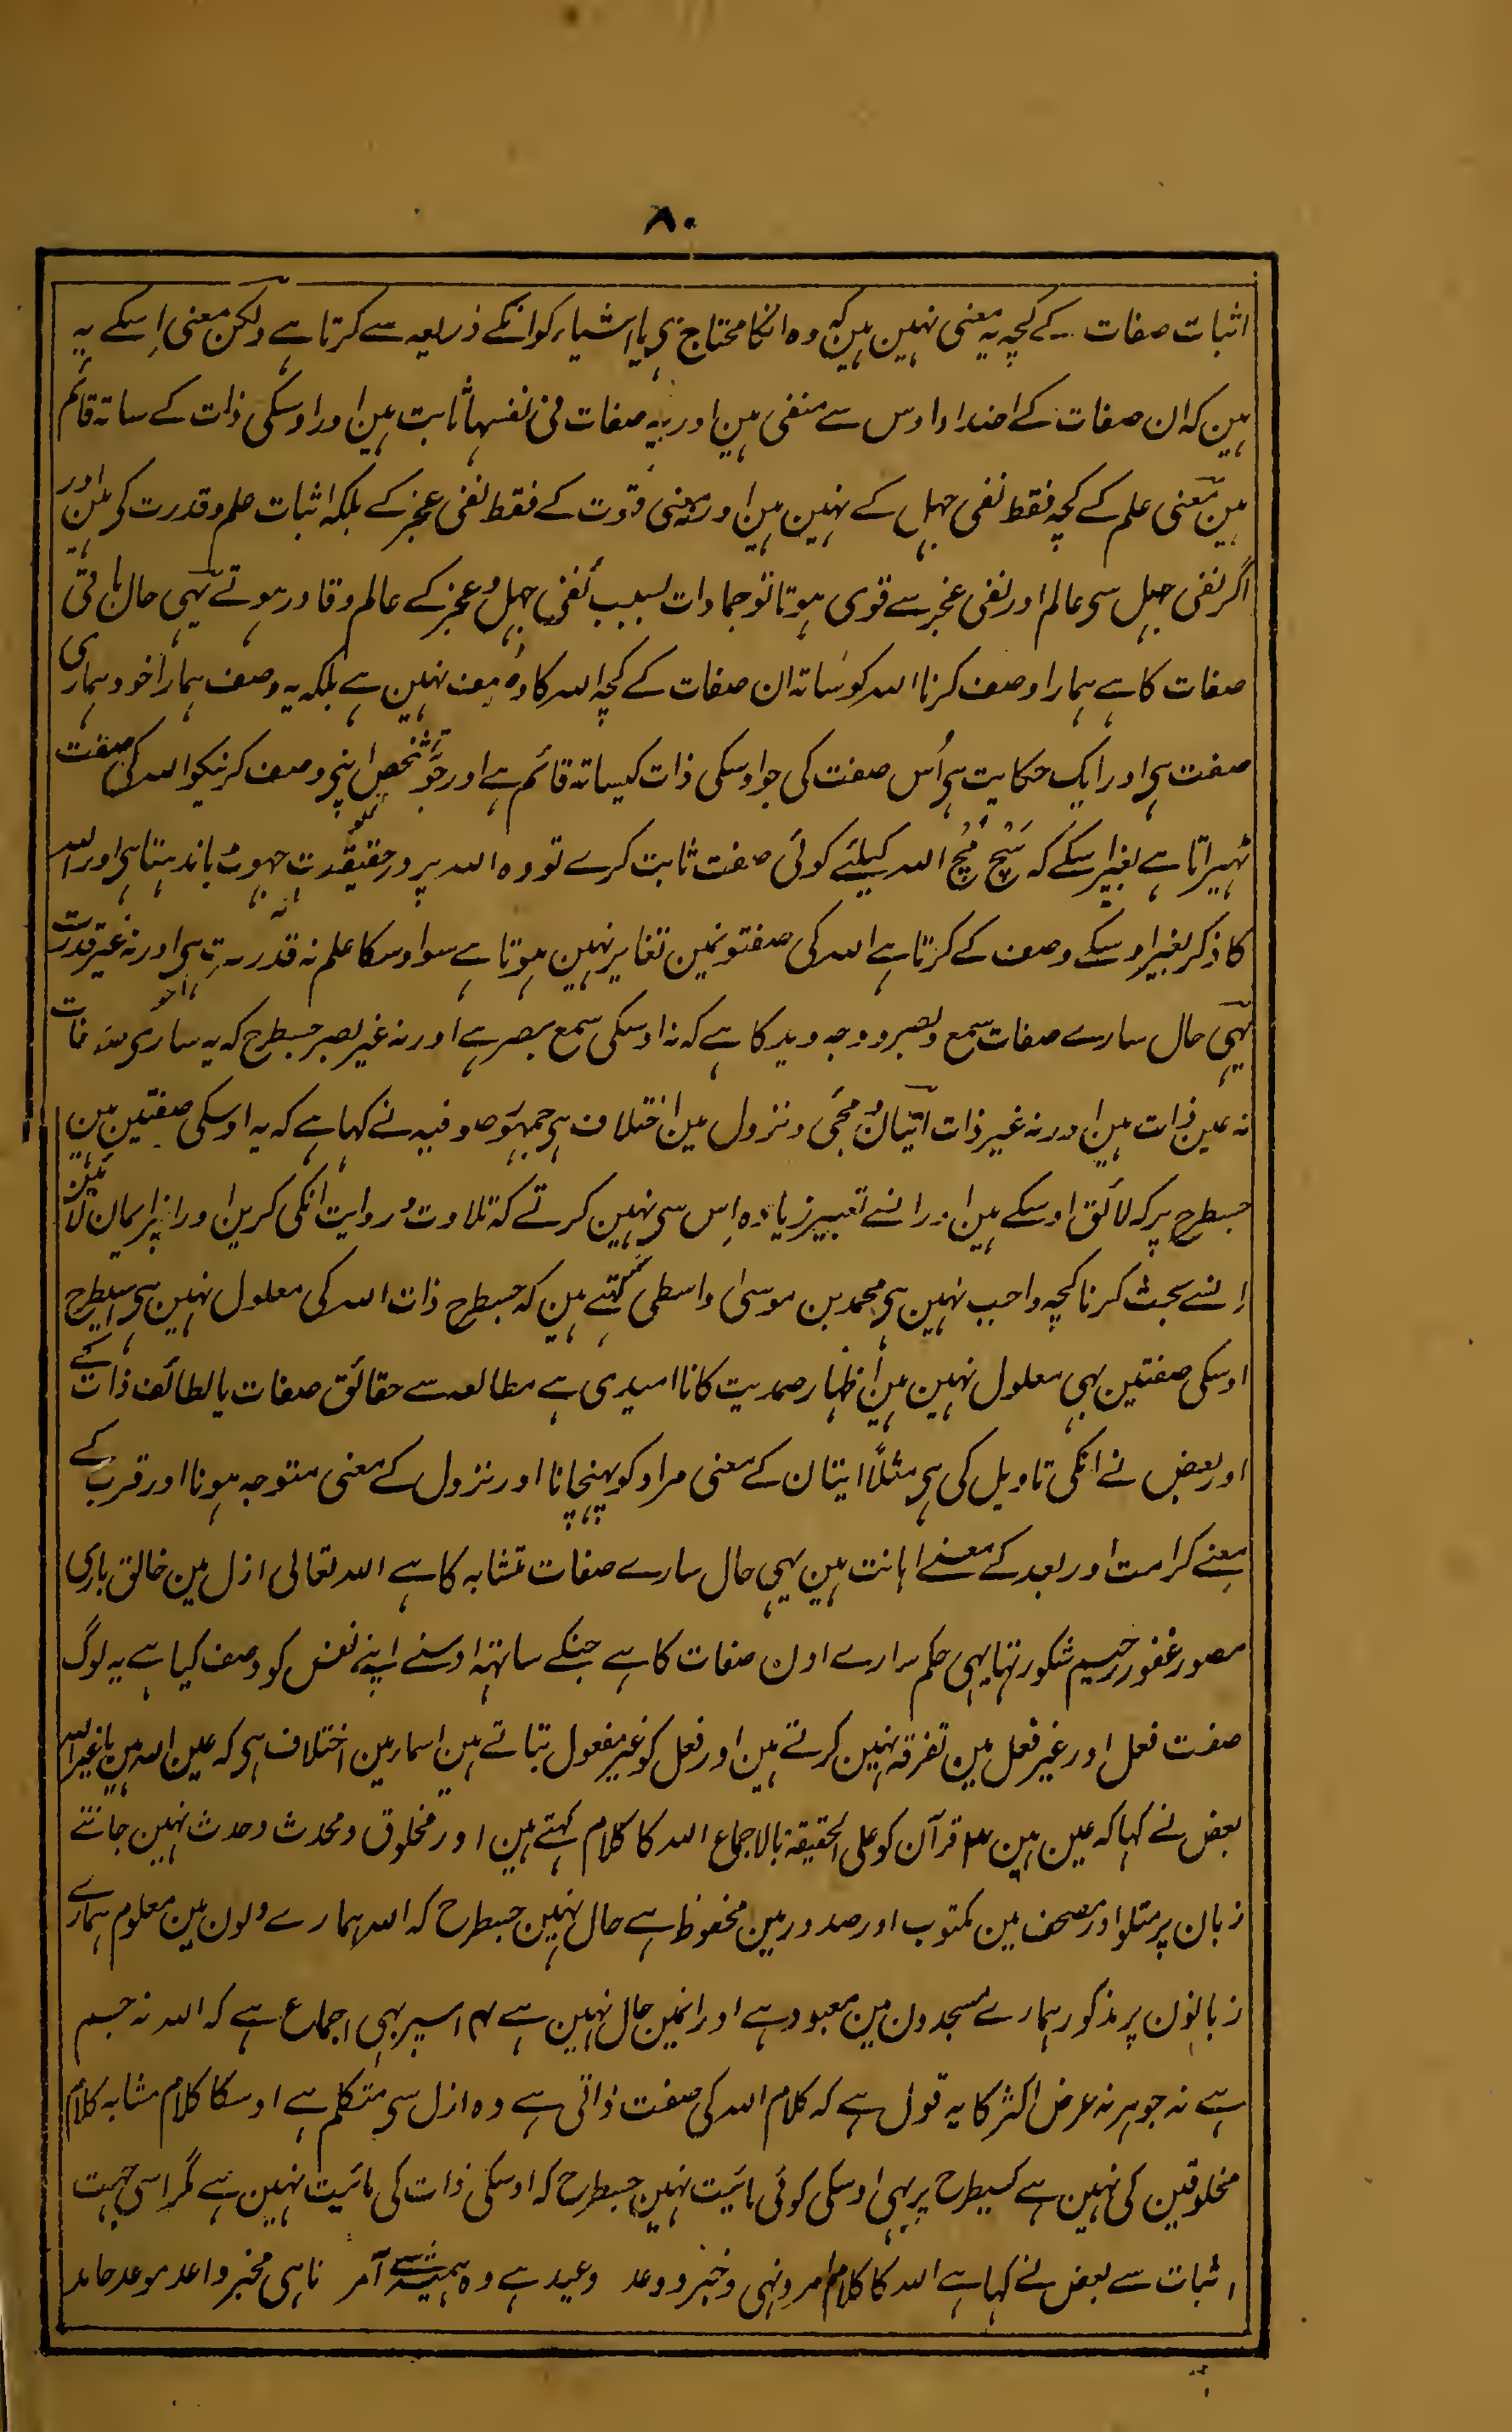 ۸۰
اثبات صفات کے کچہ یہ معنی نہین ہین کہ وہ انکا محتاج ہی یا اشیاء کو انکے ذریعہ سے کرتا ہے ولکن معنی اِسکے یہ
ہین کہ ان صفات کے اضداد اوس سے منفی ہین اور یہ صفات فی نفسہا ثابت ہین اور اوسکی ذات کے ساتہ قائم
ہین معنی علم کے کچہ فقط نفی جہل کے نہین ہین اور نہ معنی قوت کے فقط نفی عجز کے بلکہ اثبات علم و قدرت کی ہین اور
اگر نفی جہل سی عالم اور نفی عجز سے قوی ہوتا تو جمادات بسبب نفی جہل و عجز کے عالم و قادر ہوتے یہی حال باقی
صفات کا ہے ہمارا وصف کرنا اللہ کو ساتہ ان صفات کے کچہ اللہ کا وصف نہین ہے بلکہ یہ وصف ہمارا خود ہماری
صفت ہی اور ایک حکایت ہی اُس صفت کی جو اوسکی ذات کیساتہ قائم ہے اور جو شخص اپنی وصف کرنیکو اللہ کی صفت
ٹہیراتا ہے بغیر اسکے کہ سَچ مُچ اللہ کیلئے کوئی صفت ثابت کرے تو وہ اللہ پر درحقیقت جہوٹ باندہتا ہی اور اللہ
کا ذکر بغیر اوسکے وصف کے کرتا ہے اللہ کی صفتونمین تغایر نہین ہوتا ہے سو اوسکا علم نہ قدرت ہی اور نہ غیر قدرت
یہی حال سارے صفات سمع و بصر و وجہ و ید کا ہے کہ نہ اوسکی سمع بصر ہے اور نہ غیر بصر جسطرح کہ یہ ساری صفات
نہ عین ذات ہین اور نہ غیر ذات اتیان و مجئ و نزول مین اختلاف ہی جمہور صوفیہ نے کہا ہے کہ یہ اوسکی صفتین ہین
جسطرح پر کہ لائق اوسکے ہین اور انسے تعبیر زیادہ اِس سی نہین کرتے کہ تلاوت و روایت انکی کرین اور انپر ایمان لائین
اِنسے بحث کرنا کچہ واجب نہین ہی محمد بن موسیٰ واسطی کہتے ہین کہ جسطرح ذات اللہ کی معلول نہین ہی اسیطرح
اوسکی صفتین بہی معلول نہین ہین اظہار صمدیت کا ناامیدی ہے مطالعہ سے حقائق صفات یا لطائف ذات کے
اور بعض نے انکی تاویل کی ہی مثلاً اتیان کے معنی مراد کو پہنچانا اور نزول کے معنی متوجہ ہونا اور قرب کے
معنے کرامت اور بعد کے معنے اہانت ہین یہی حال سارے صفات متشابہ کا ہے اللہ تعالی ازل مین خالق باری
مصور غفور رحیم شکور تہا یہی حکم سارے اون صفات کا ہے جنکے ساتہہ اوسنے اپنے نفس کو وصف کیا ہے یہ لوگ
صفت فعل اور غیر فعل مین تفرقہ نہین کرتے ہین اور فعل کو غیر مفعول بتاتے ہین اسماء مین اختلاف ہی کہ عین اللہ ہین یا غیر اللہ
بعض نے کہا کہ عین ہین قرآن کو علی الحقیقة بالاجماع اللہ کا کلام کہتے ہین اور مخلوق و محدث و حدث نہین جانتے
زبان پر متلو اور مصحف مین مکتوب اور صدور مین محفوظ ہے حال نہین جسطرح کہ اللہ ہمارے دلون مین معلوم ہمارے
زبانون پر مذکور ہمارے مسجدون مین معبود ہے اور انمین حال نہین ہے اسپر بہی اجماع ہے کہ اللہ نہ جسم
ہے نہ جوہر نہ عرض اکثر کا یہ قول ہے کہ کلام اللہ کی صفت ذاتی ہے وہ ازل سی متکلم ہے اوسکا کلام مشابہ کلام
مخلوقین کی نہین ہے کسیطرح پر بہی اوسکی کوئی مائیت نہین جسطرح کہ اوسکی ذات کی مائیت نہین ہے مگر اسی جہت
اثبات سے بعض نے کہا ہے اللہ کا کلام امر و نہی و خبر و وعد وعید ہے وہ ہمیشہ سے آمر ناہی مخبر واعد موعد حامد